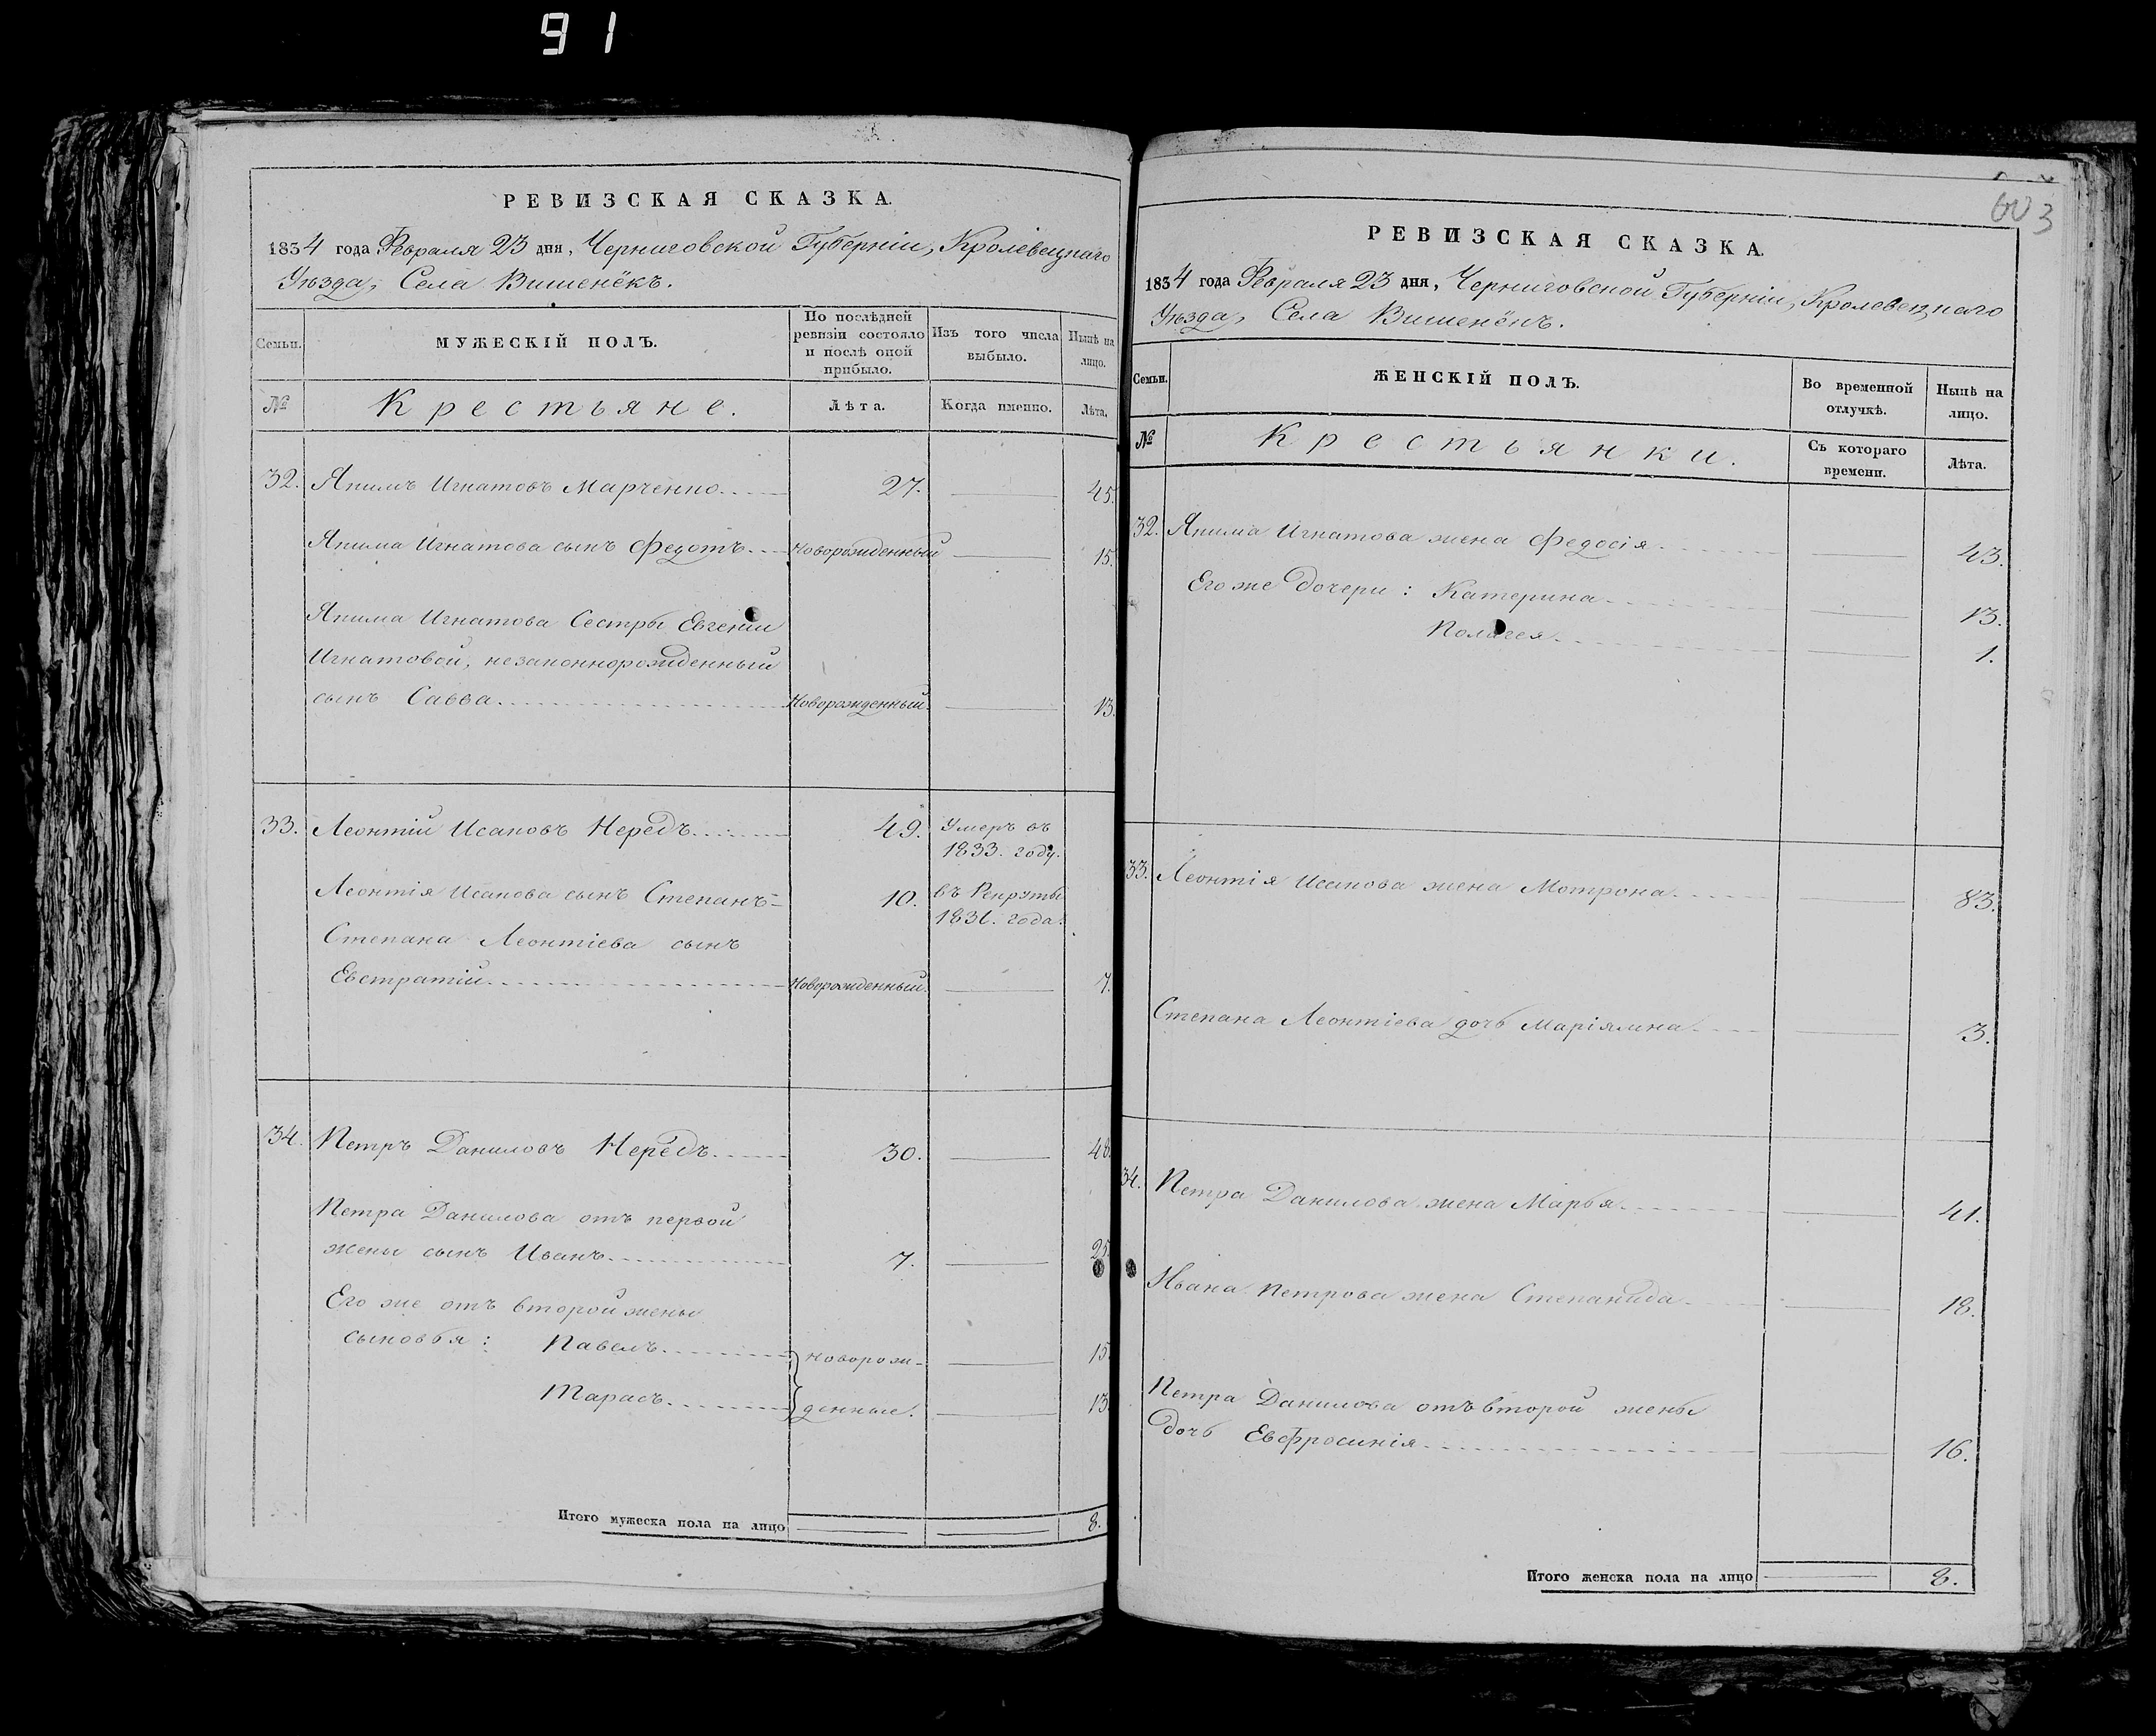 91
РЕВИЗСКАЯ СКАЗКА.
1834 года Февраля 23 дня, Черниговской Губерніи, Кролевецкаго
Уѣзда, Села Вишенёкъ.
Семьи.
МУЖЕСКІЙ ПОЛЪ.
По послѣдней ревизіи состояло и послѣ оной прибыло.
Изъ того числа выбыло.
Нынѣ на лицо.
№
Крестьяне.
Лѣта.
Когда именно.
Лѣта.
32. Якимъ Игнатовъ Марченко 27. 45.
Якима Игнатова сынъ Федотъ Новорожденный 15.
Якима Игнатова Сестры Евгеніи
Игнатовой, незаконнорожденный
сынъ Савва Новорожденный. 13.
33. Леонтій Исаковъ Нередъ 49. Умеръ въ
1833. году.
Леонтія Исакова сынъ Степанъ 10. въ Рекруты
1831. года.
Степана Леонтіева сынъ
Евстратій Новорожденный. 7.
34. Петръ Даниловъ Нередъ 30. 48.
Петра Данилова отъ первой
жены сынъ Иванъ 7. 25.
Его же отъ второй жены
сыновья: Павелъ новорож- 15.
Тарасъ денные. 13.
Итого мужеска пола на лицо 8.
603
РЕВИЗСКАЯ СКАЗКА.
1834 года Февраля 23 дня, Черниговской Губерніи, Кролевецкаго
Уѣзда, Села Вишенёкъ.
Семьи.
ЖЕНСКІЙ ПОЛЪ.
Во временной отлучкѣ.
Нынѣ на лицо.
№
Крестьянки.
Съ котораго времени.
Лѣта.
32. Якима Игнатова жена Федосія 43.
Его же дочери: Катерина 13.
Полагея 1.
33. Леонтія Исакова жена Мотрона 83.
Степана Леонтіева дочь Маріямна 3.
34. Петра Данилова жена Марья 41.
Ивана Петрова жена Степанида 18.
Петра Данилова отъ второй жены
дочь Евфросинія 16.
Итого женска пола на лицо 8.